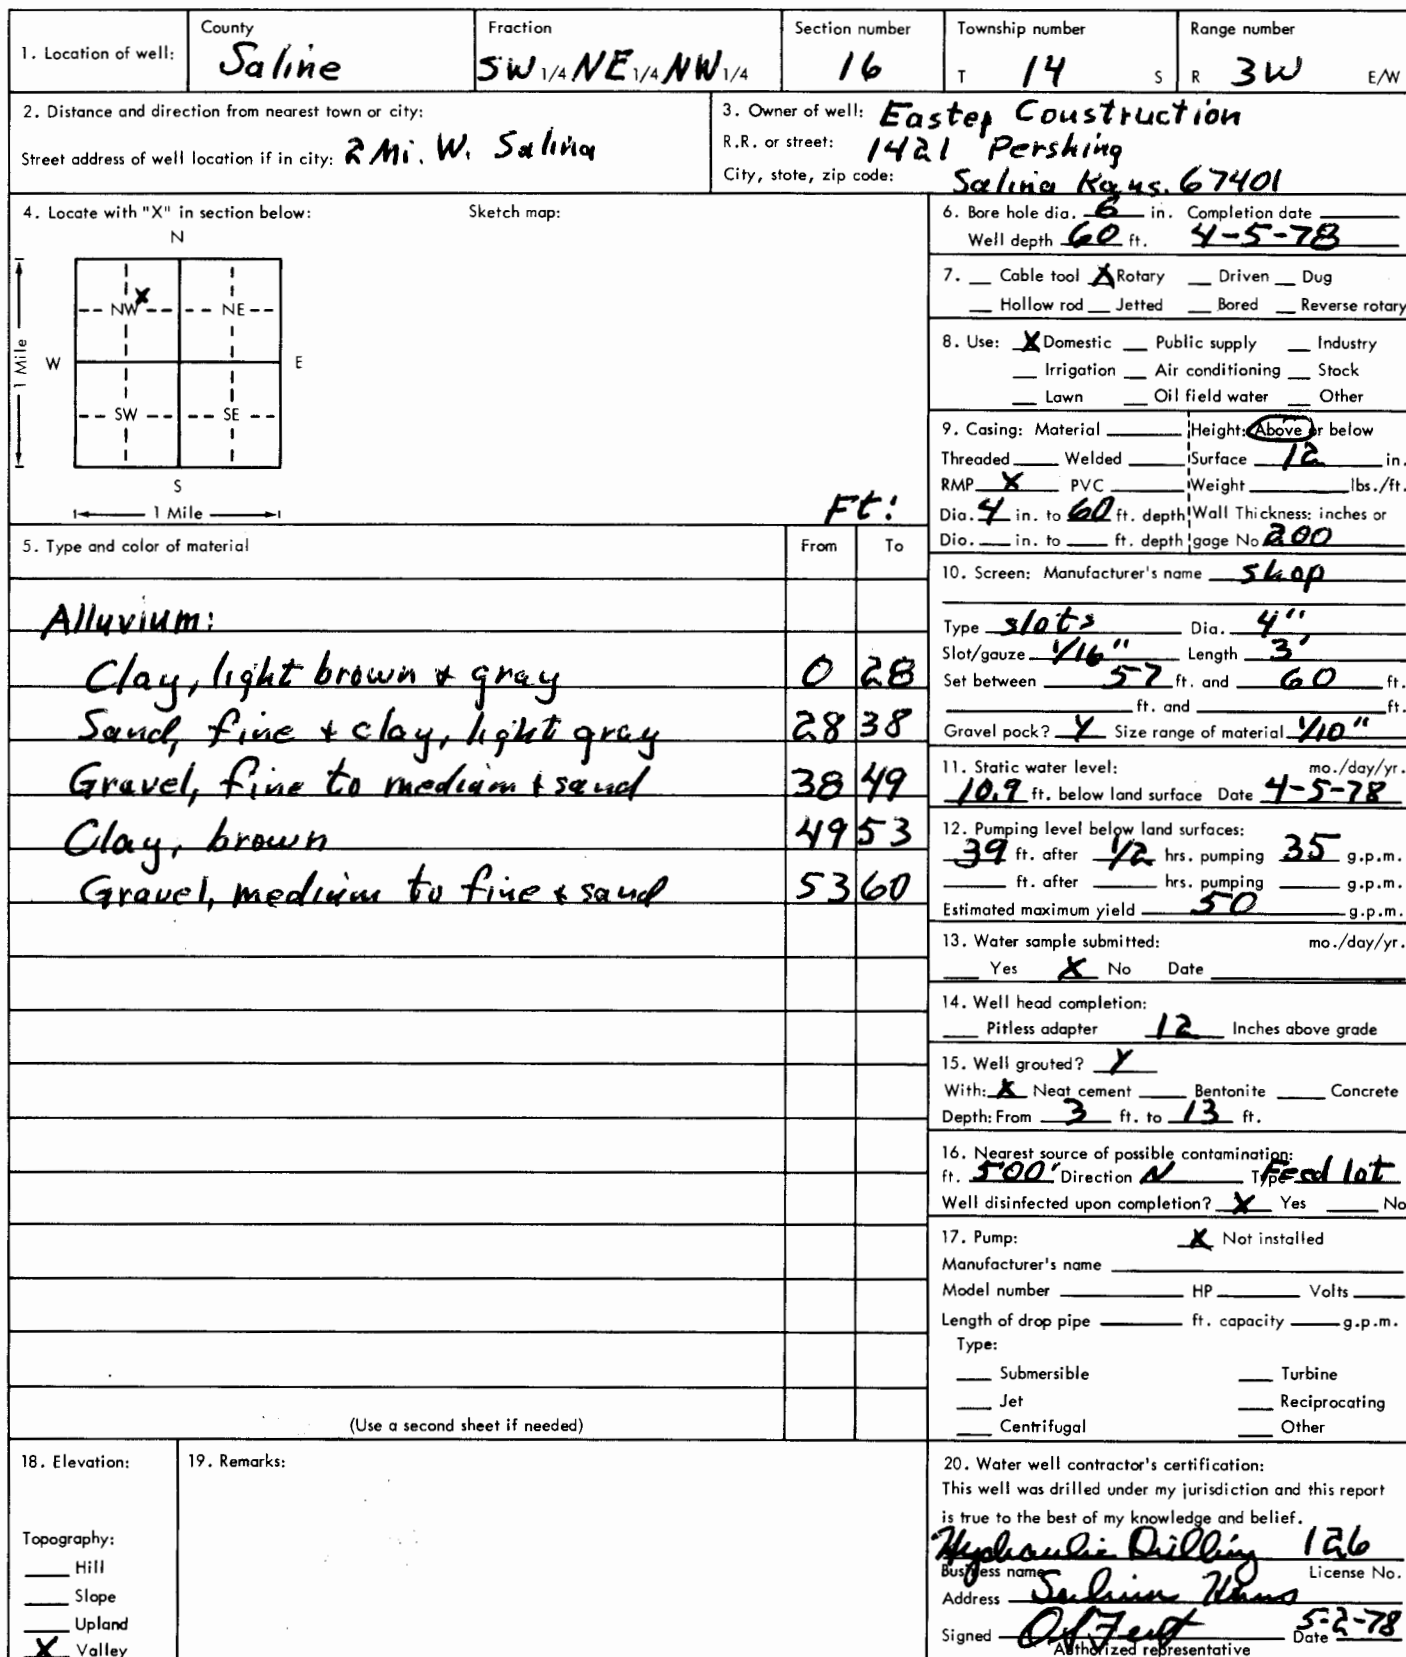 1. Location of well: County Saline Fraction SW 1/4 NE 1/4 NW 1/4 Section number 16 Township number T 14 S Range number R 3W E/W
2. Distance and direction from nearest town or city:
Street address of well location if in city: 2 Mi. W. Salina
3. Owner of well: Eastep Construction
R.R. or street: 1421 Pershing
City, state, zip code: Salina Kans. 67401
4. Locate with "X" in section below: Sketch map:
N
X
NW NE
W E
1 Mile
SW SE
S
1 Mile
Ft:
5. Type and color of material From To
Alluvium:
Clay, light brown & gray 0 28
Sand, fine & clay, light gray 28 38
Gravel, fine to medium & sand 38 49
Clay, brown 49 53
Gravel, medium to fine & sand 53 60
(Use a second sheet if needed)
6. Bore hole dia. 6 in. Completion date
Well depth 60 ft. 4-5-78
7. Cable tool X Rotary Driven Dug
Hollow rod Jetted Bored Reverse rotary
8. Use: X Domestic Public supply Industry
Irrigation Air conditioning Stock
Lawn Oil field water Other
9. Casing: Material Height: Above or below
Threaded Welded Surface 12 in.
RMP X PVC Weight lbs./ft.
Dia. 4 in. to 60 ft. depth Wall Thickness: inches or
Dia. in. to ft. depth gage No 200
10. Screen: Manufacturer's name shop
Type slots Dia. 4"
Slot/gauze 1/16" Length 3'
Set between 57 ft. and 60 ft.
ft. and ft.
Gravel pack? Y Size range of material 1/10"
11. Static water level: mo./day/yr.
10.9 ft. below land surface Date 4-5-78
12. Pumping level below land surfaces:
39 ft. after 1/2 hrs. pumping 35 g.p.m.
ft. after hrs. pumping g.p.m.
Estimated maximum yield 50 g.p.m.
13. Water sample submitted: mo./day/yr.
Yes X No Date
14. Well head completion:
Pitless adapter 12 Inches above grade
15. Well grouted? Y
With: X Neat cement Bentonite Concrete
Depth: From 3 ft. to 13 ft.
16. Nearest source of possible contamination:
ft. 500' Direction N Type Feed lot
Well disinfected upon completion? X Yes No
17. Pump: X Not installed
Manufacturer's name
Model number HP Volts
Length of drop pipe ft. capacity g.p.m.
Type:
Submersible Turbine
Jet Reciprocating
Centrifugal Other
18. Elevation:
Topography:
Hill
Slope
Upland
X Valley
19. Remarks:
20. Water well contractor's certification:
This well was drilled under my jurisdiction and this report
is true to the best of my knowledge and belief.
Hydraulic Drilling 126
Business name License No.
Address Salina Kans
Signed Date 5-2-78
Authorized representative